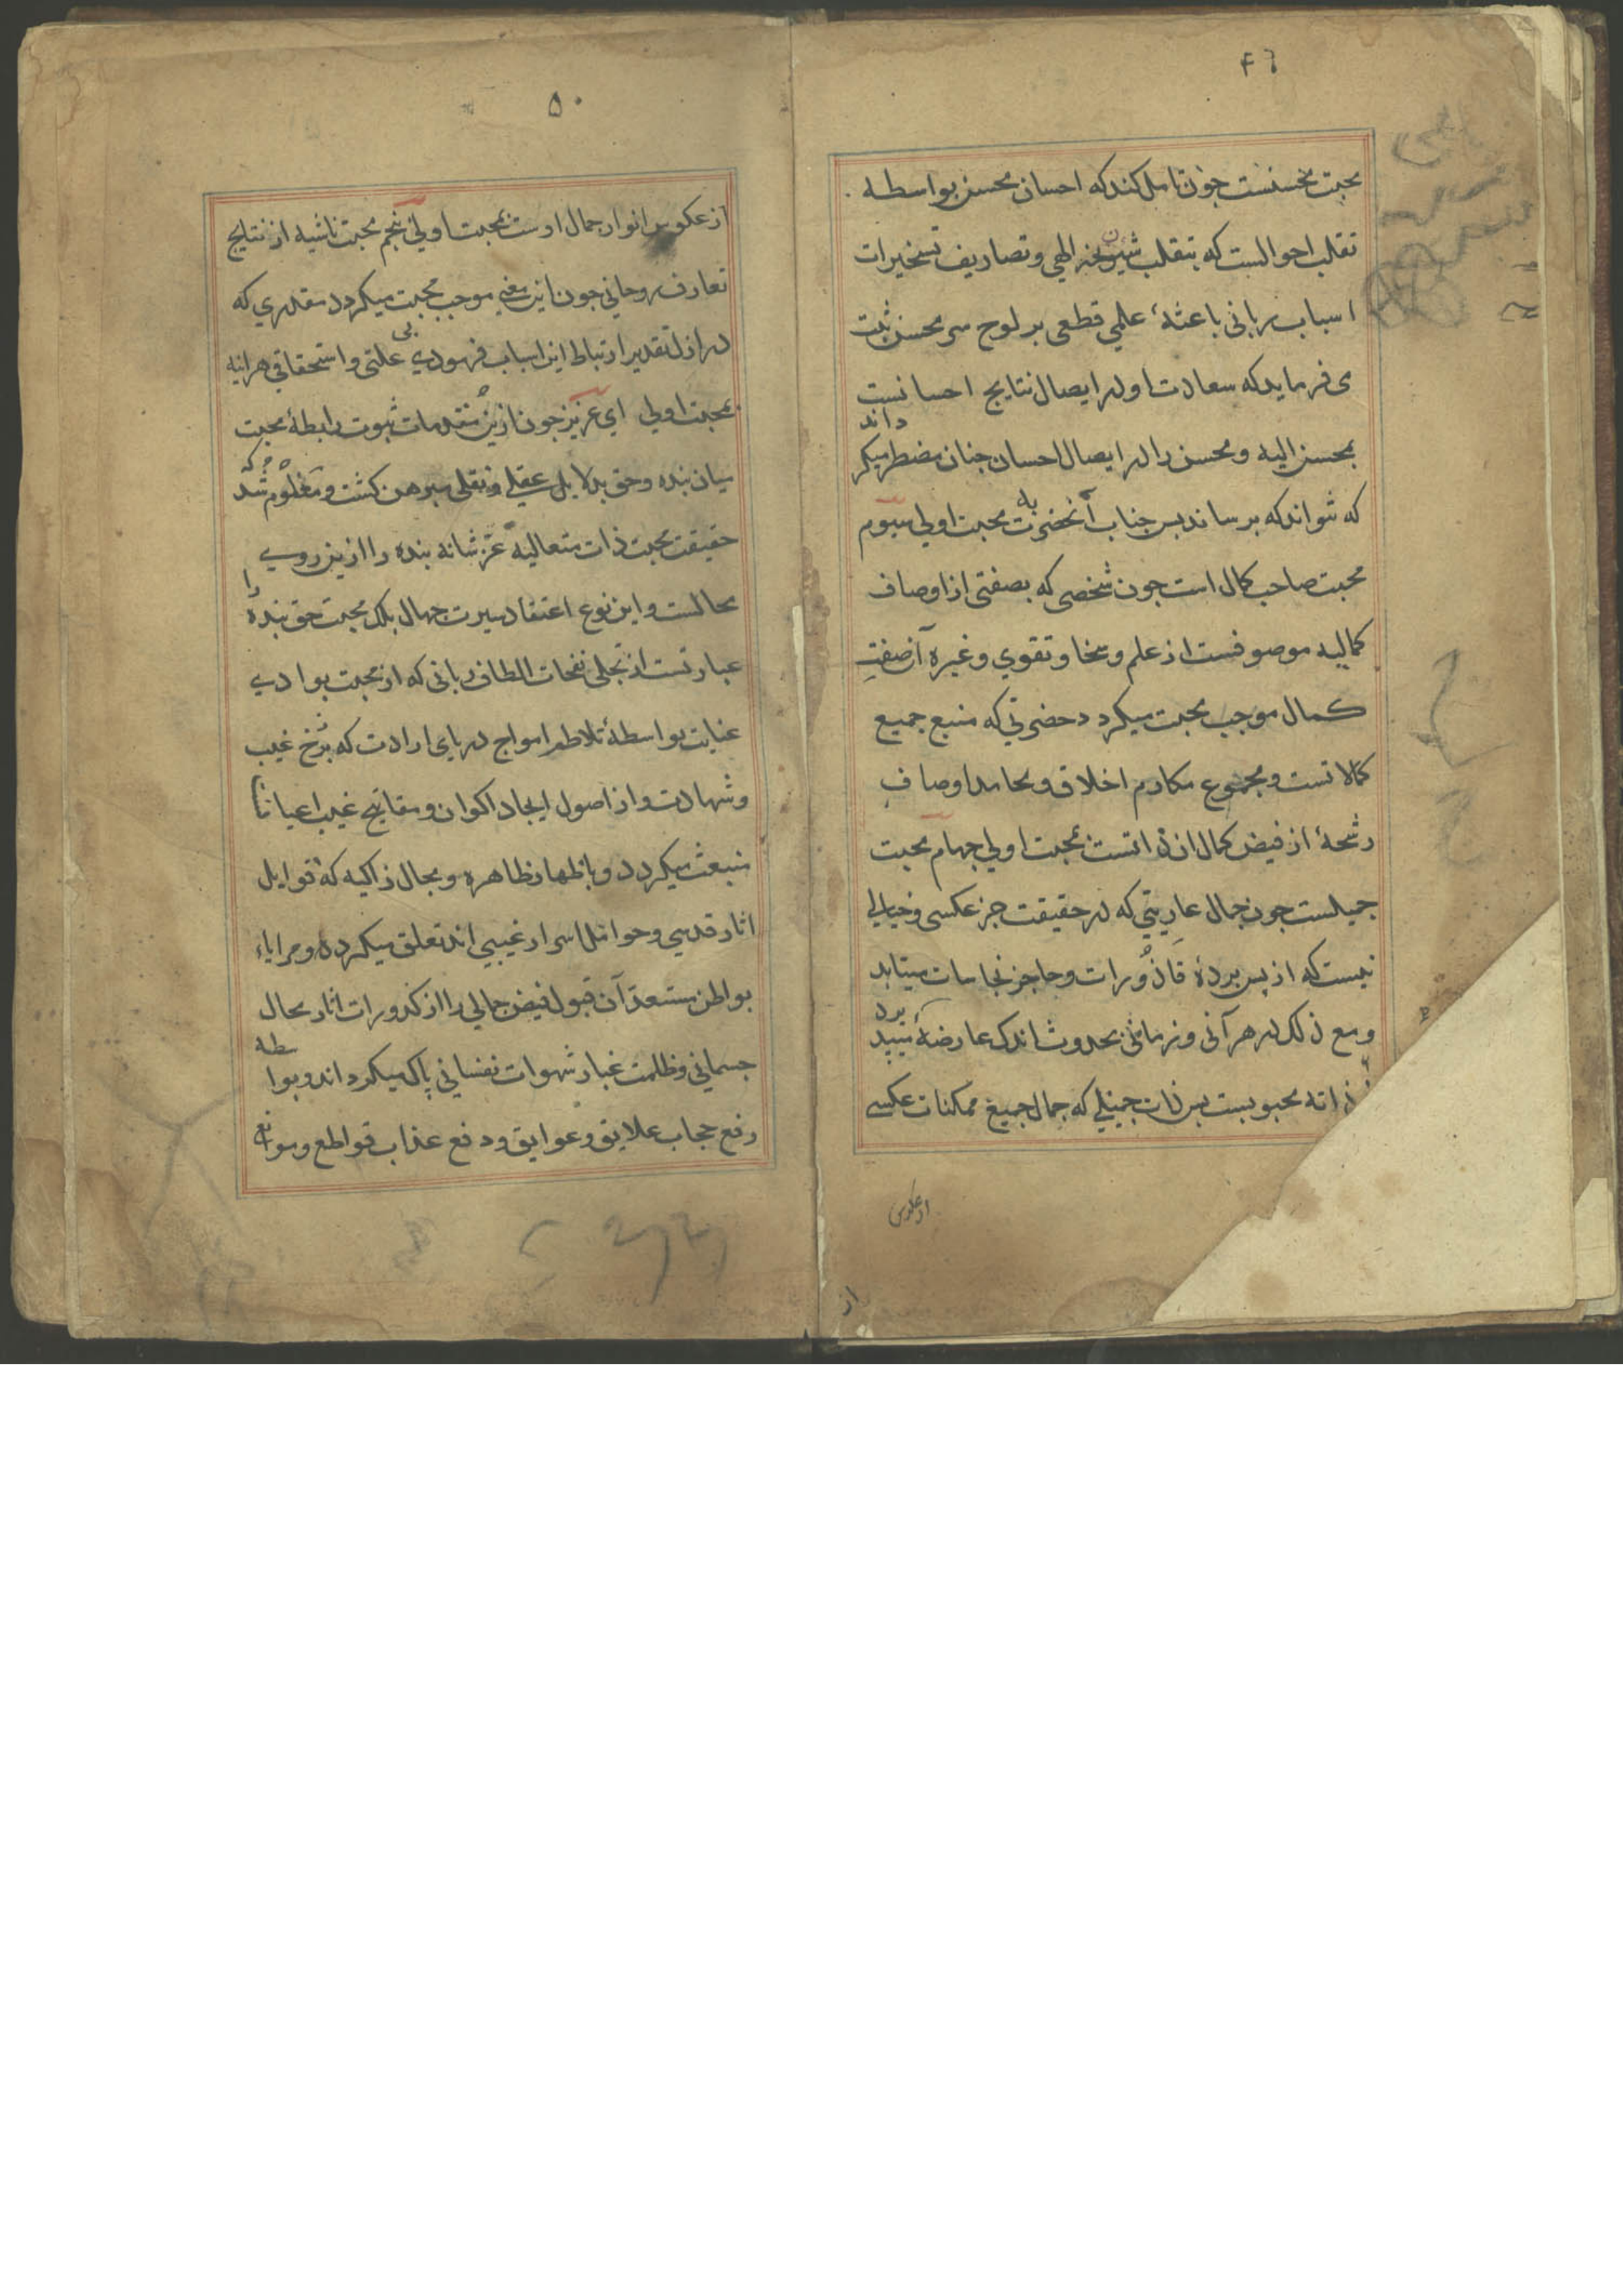 ۴۹
محبت محسنست جون تامل کند که احسان محسن بواسطه
تقلب احوالست که بتقلب شیون الهی وتصاریف تسخیرات
اسباب ربانی باعثهٔ علمی قطعی بر لوح سر محسن ثبت
می فرماید که سعادت او در ایصال نتایج احسانست
بمحسن الیه و محسن را در ایصال احسان جنان مضطر میکرداند
که نتواند که نرساند پس جناب آنحضرت به محبت اولی سیوم
محبت صاحب کمال است جون شخصی که بصفتی از اوصاف
کمالیه موصوفست از علم و سخا و تقوی و غیره آن صفتِ
کمال موجب محبت میکردد حضرتی که منبع جمیع
کمالاتست و مجموع مکارم اخلاق و محامد اوصافِ
رشحهٔ از فیض کمال ان ذاتست بمحبت اولی جهام محبت
جمیلست جون جمال عاریتی که در حقیقت جز عکسی و خیالی
نیست که از پس بردهٔ قاذورات و حاجز نجاسات میتابد
و مع ذلک در هر آنی و زمانی بحدوث اندک عارضهٔ می‌بذیرد
لذاته محبوبست پس ذات جمیلی که جمال جمیع ممکنات عکسی
از عکوس
از
۵۰
از عکوس انوار جمال اوست بمحبت اولی پنجم محبت ناشیه از نتایج
تعارف روحانی جون این معنی موجب محبت میکردد مقدری که
در ازل تقدیر ارتباط این اسباب فرمود بی علتی و استحقاقی هراینه
بمحبت اولی ای عزیز جون ازین مقدمات ثبوت رابطهٔ محبت
میان بنده و حق بدلایل عقلی و نقلی مبرهن کشت و معلوم شد که
حقیقت محبت ذات متعالیه عزّ شانه بنده را ازین روی
محالست و این نوع اعتقاد سیرت جهال بلک محبت حق بنده را
عبارتست از تجلی نفحات الطاف ربانی که از محبت بوادی
عنایت بواسطهٔ تلاطم امواج دریای ارادت که برزخ غیب
و شهادت و از اصول ایجاد اکوان و مفاتیح غیب اعیانا
منبعث میکردد و باظهار ظاهره و مجال زاکیه که قوابل
اثار قدسی و حوامل اسرار غیبی اند تعلق میکرد و مرایاء
بواطن مستعد آن قبول فیض جمالی را از کدورات اثار محال
جسمانی و ظلمت غبار شهوات نفسانی پاک میکرداند و بواسطه
رفع حجاب علایق و عوایق و دفع عذاب قواطع و موانع